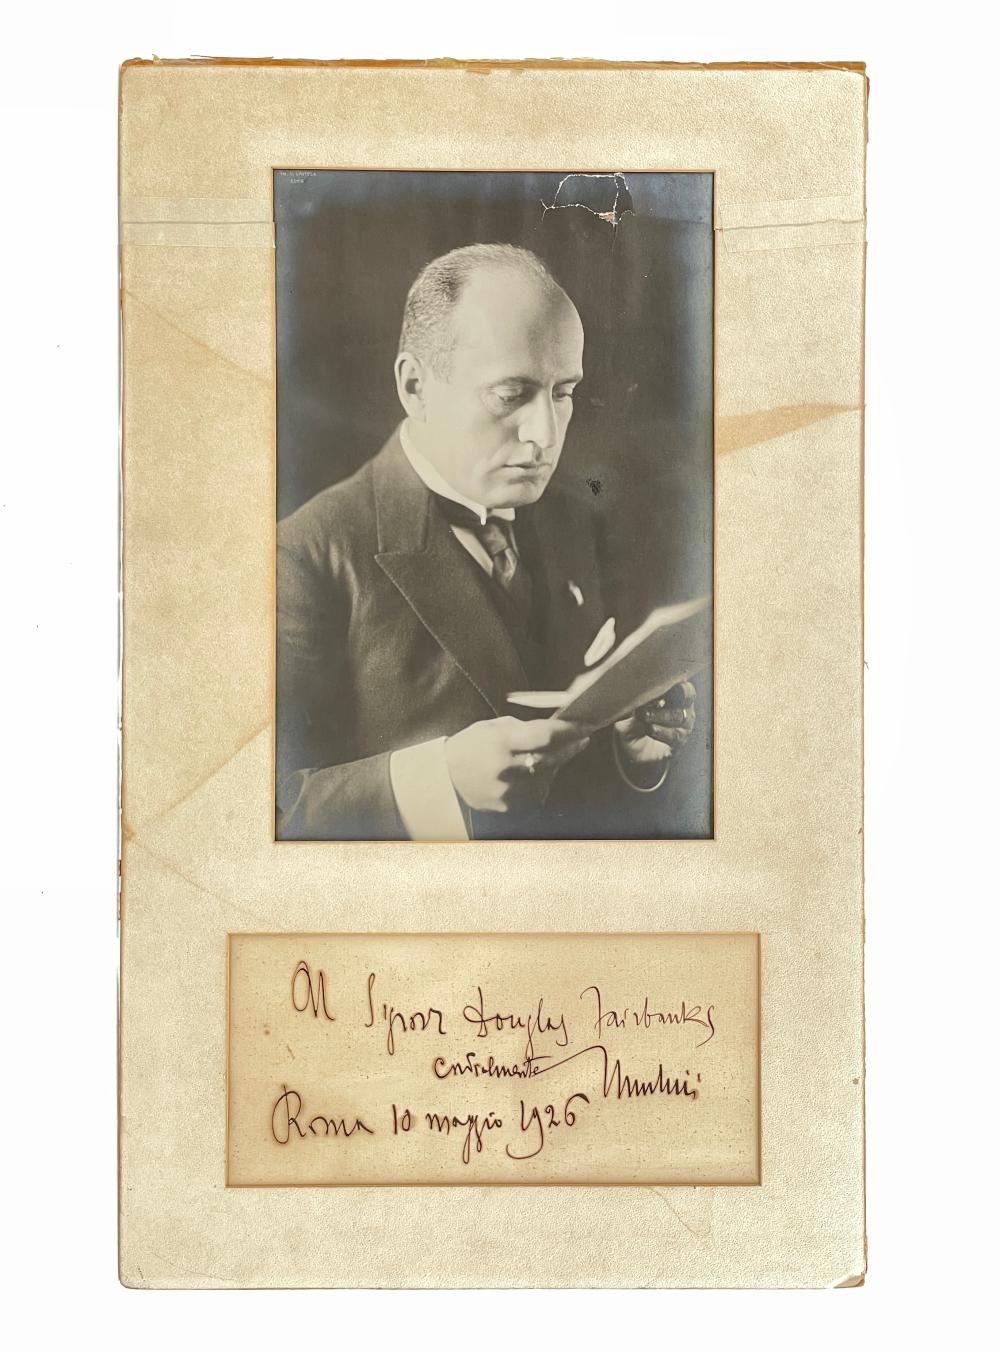 ROMA
Al Signor Douglas Fairbanks
cordialmente Mussolini
Roma 10 maggio 1926